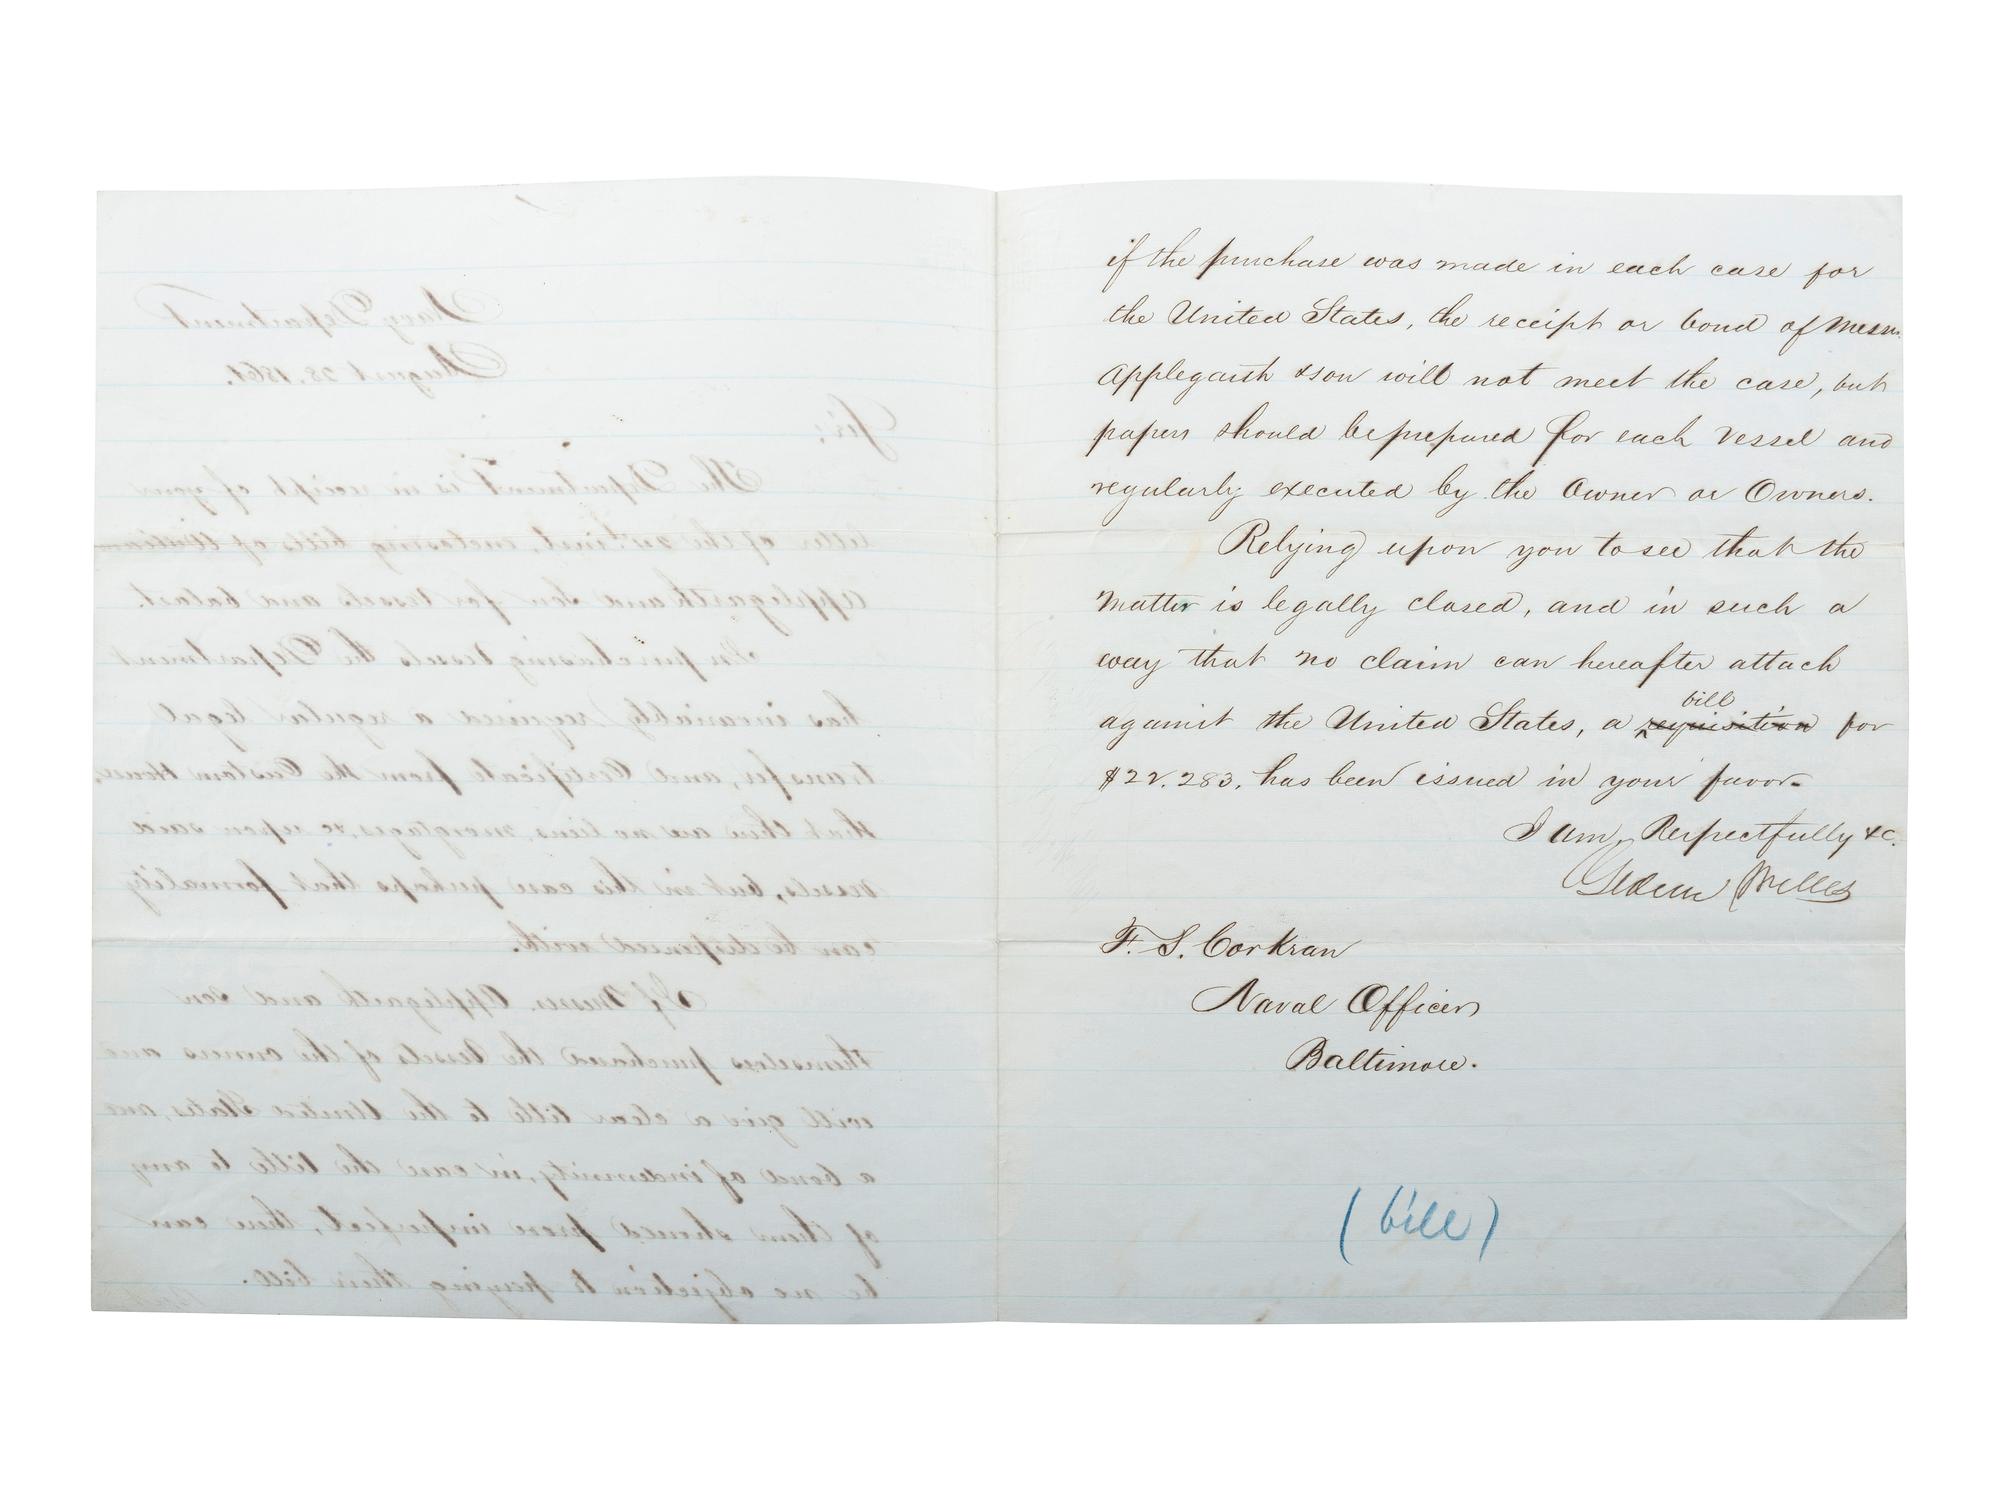 Navy Department
August 28. 1861.
Sir;
The Department is in receipt of your
letter of the inst, enclosing bills of William
Applegarth and Son for vessels and balast.
In purchasing vessels the Department
has invariably required a regular legal
transfer, and Certificate from the Custom House,
that there are no liens, mortgages, &c upon said
vessels, but in this case perhaps that formality
can be dispensed with.
If Messrs. Applegarth and Son
themselves purchased the vessels of the owners and
will give a clear title to the United States, and
a bond of indemnity, in case the title to any
of them should prove imperfect, there can
be no objection to paying their bill.
if the purchase was made in each case for
the United States, the receipt or bond of Messrs.
Applegarth & son will not meet the case, but
papers should be prepared for each vessel and
regularly executed by the Owner or Owners.
Relying upon you to see that the
Matter is legally closed, and in such a
way that no claim can hereafter attach
bill
against the United States, a requisition for
$22.283. has been issued in your favor.
I am, Respectfully &c.
Gideon Welles
F. S. Corkran
Naval Officer
Baltimore.
(bill)